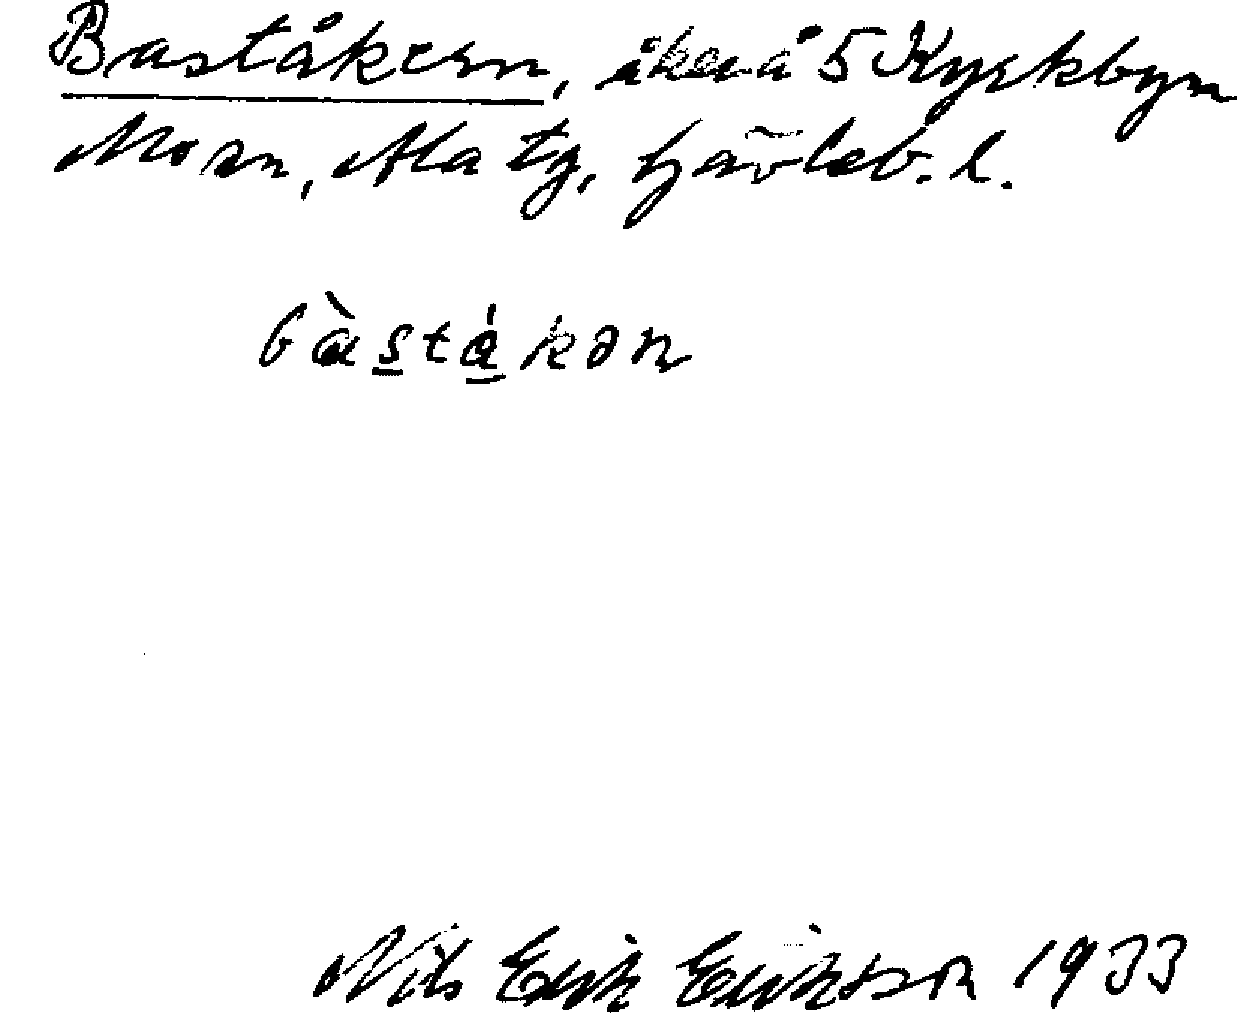 Baståkern, åker å 5 Kyrkbyn
Mo sn, Ala tg, Gävleb. l.
bàstákən
Nils Erik Eriksson 1933